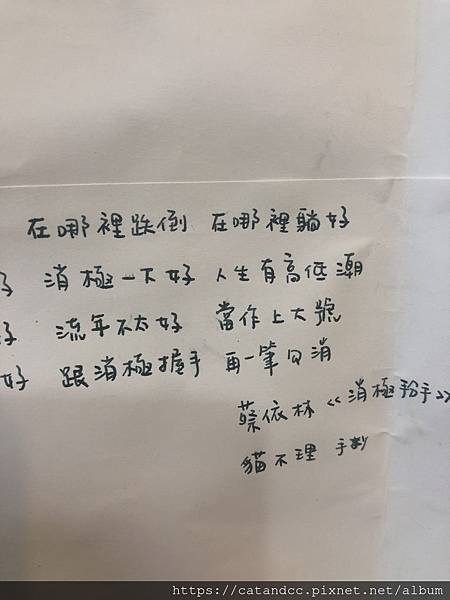 在哪裡跌倒 在哪裡躺好
好 消極一下好 人生有高低潮
好 流年不太好 當作上大號
好 跟消極握手 再一筆勾消
蔡依林《消極掰》
貓不理 手抄
https://catandcc.pixnet.net/album